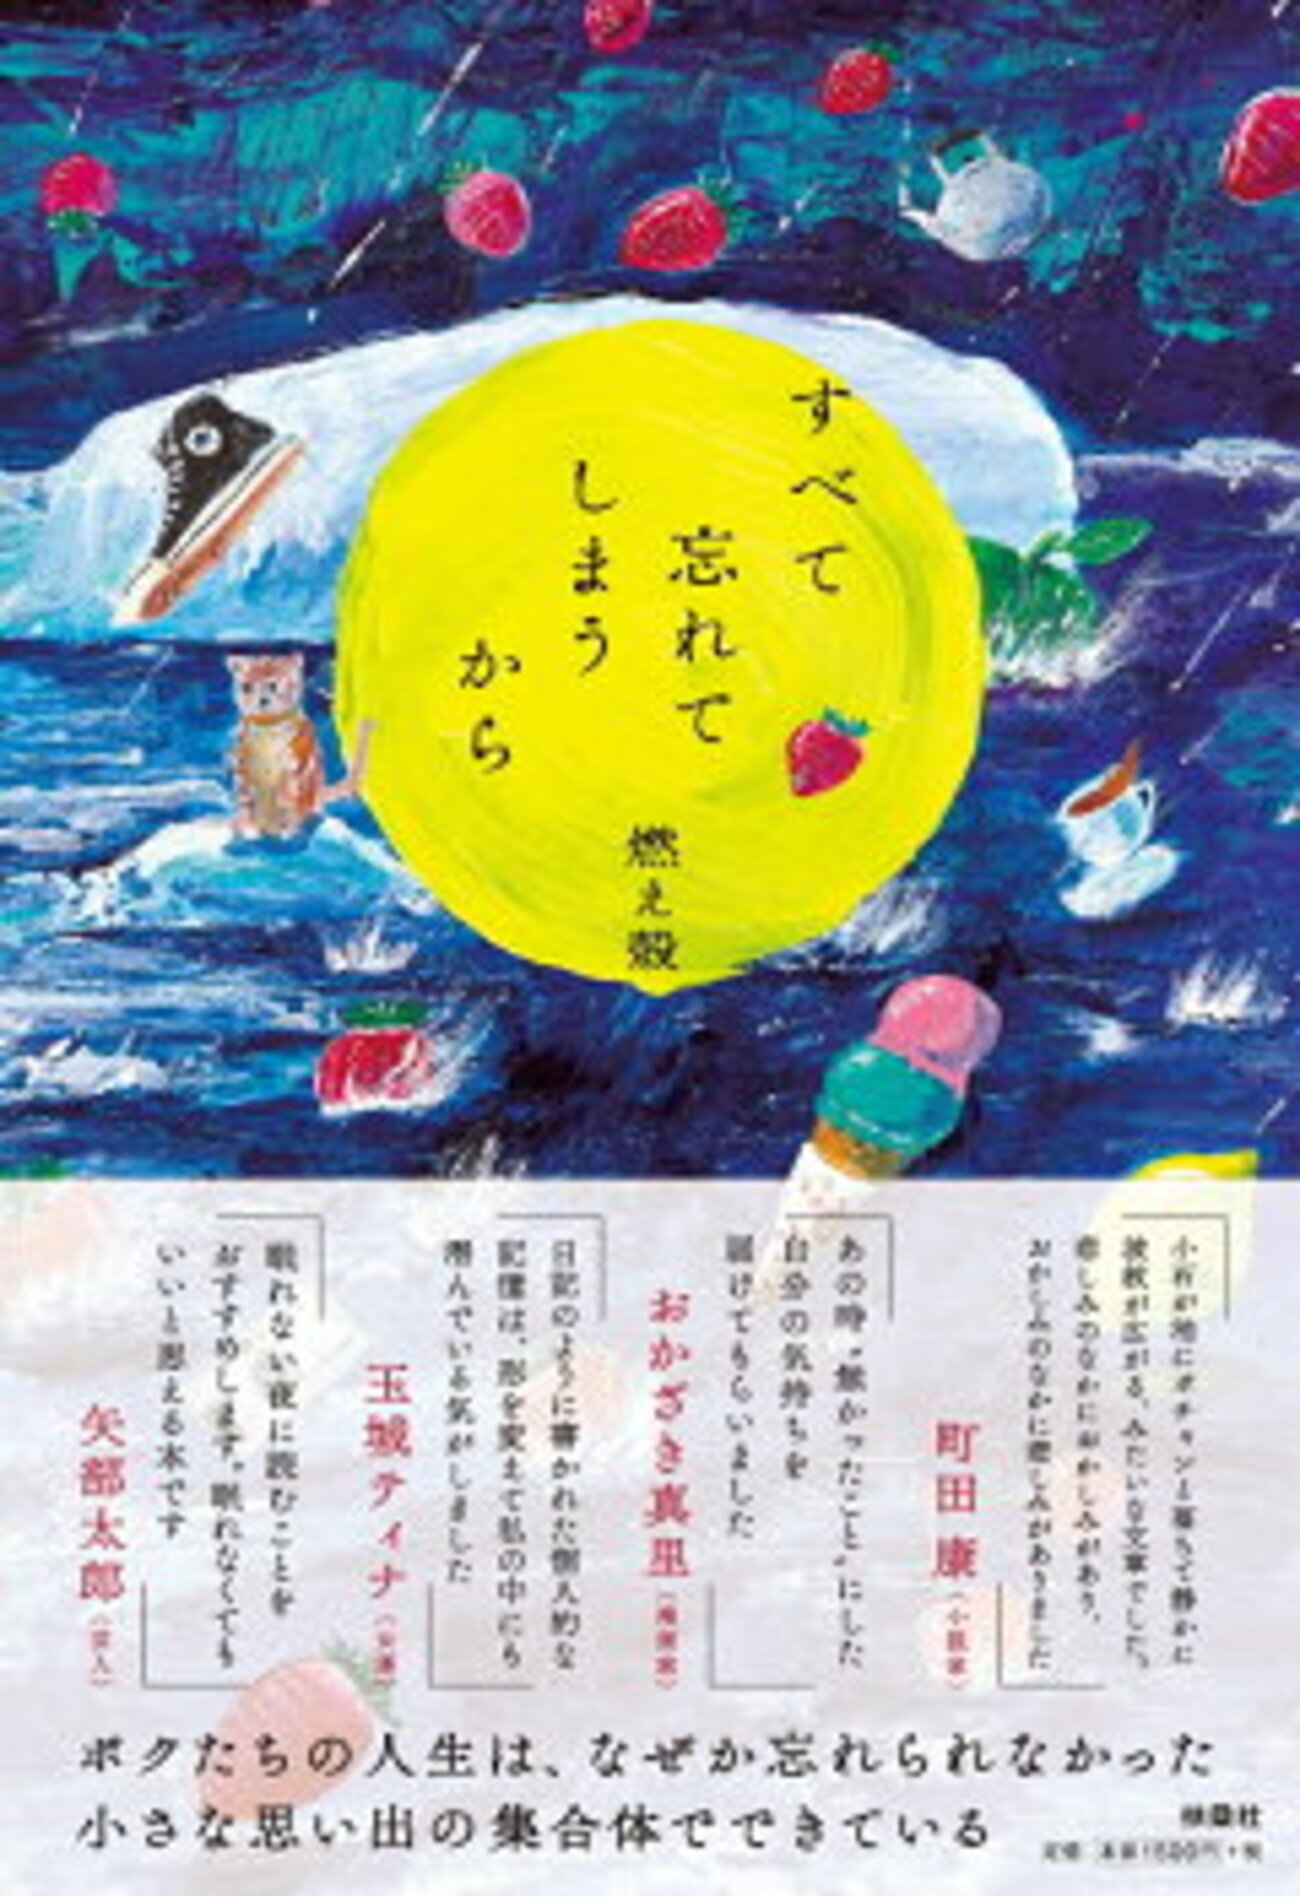 すべて
忘れて
しまう
から
燃え殻
小石が池にポチャンと落ちて静かに
波紋が広がる、みたいな文章でした。
悲しみのなかにおかしみがあり、
おかしみのなかに悲しみがありました
町田 康（小説家）
あの時〝無かったこと〟にした
自分の気持ちを
届けてもらいました
おかざき真里（漫画家）
日記のように書かれた個人的な
記憶は、形を変えて私の中にも
潜んでいる気がしました
玉城ティナ（女優）
眠れない夜に読むことを
おすすめします。眠れなくても
いいと思える本です
矢部太郎（芸人）
ボクたちの人生は、なぜか忘れられなかった
小さな思い出の集合体でできている
扶桑社
定価 本体1500円+税